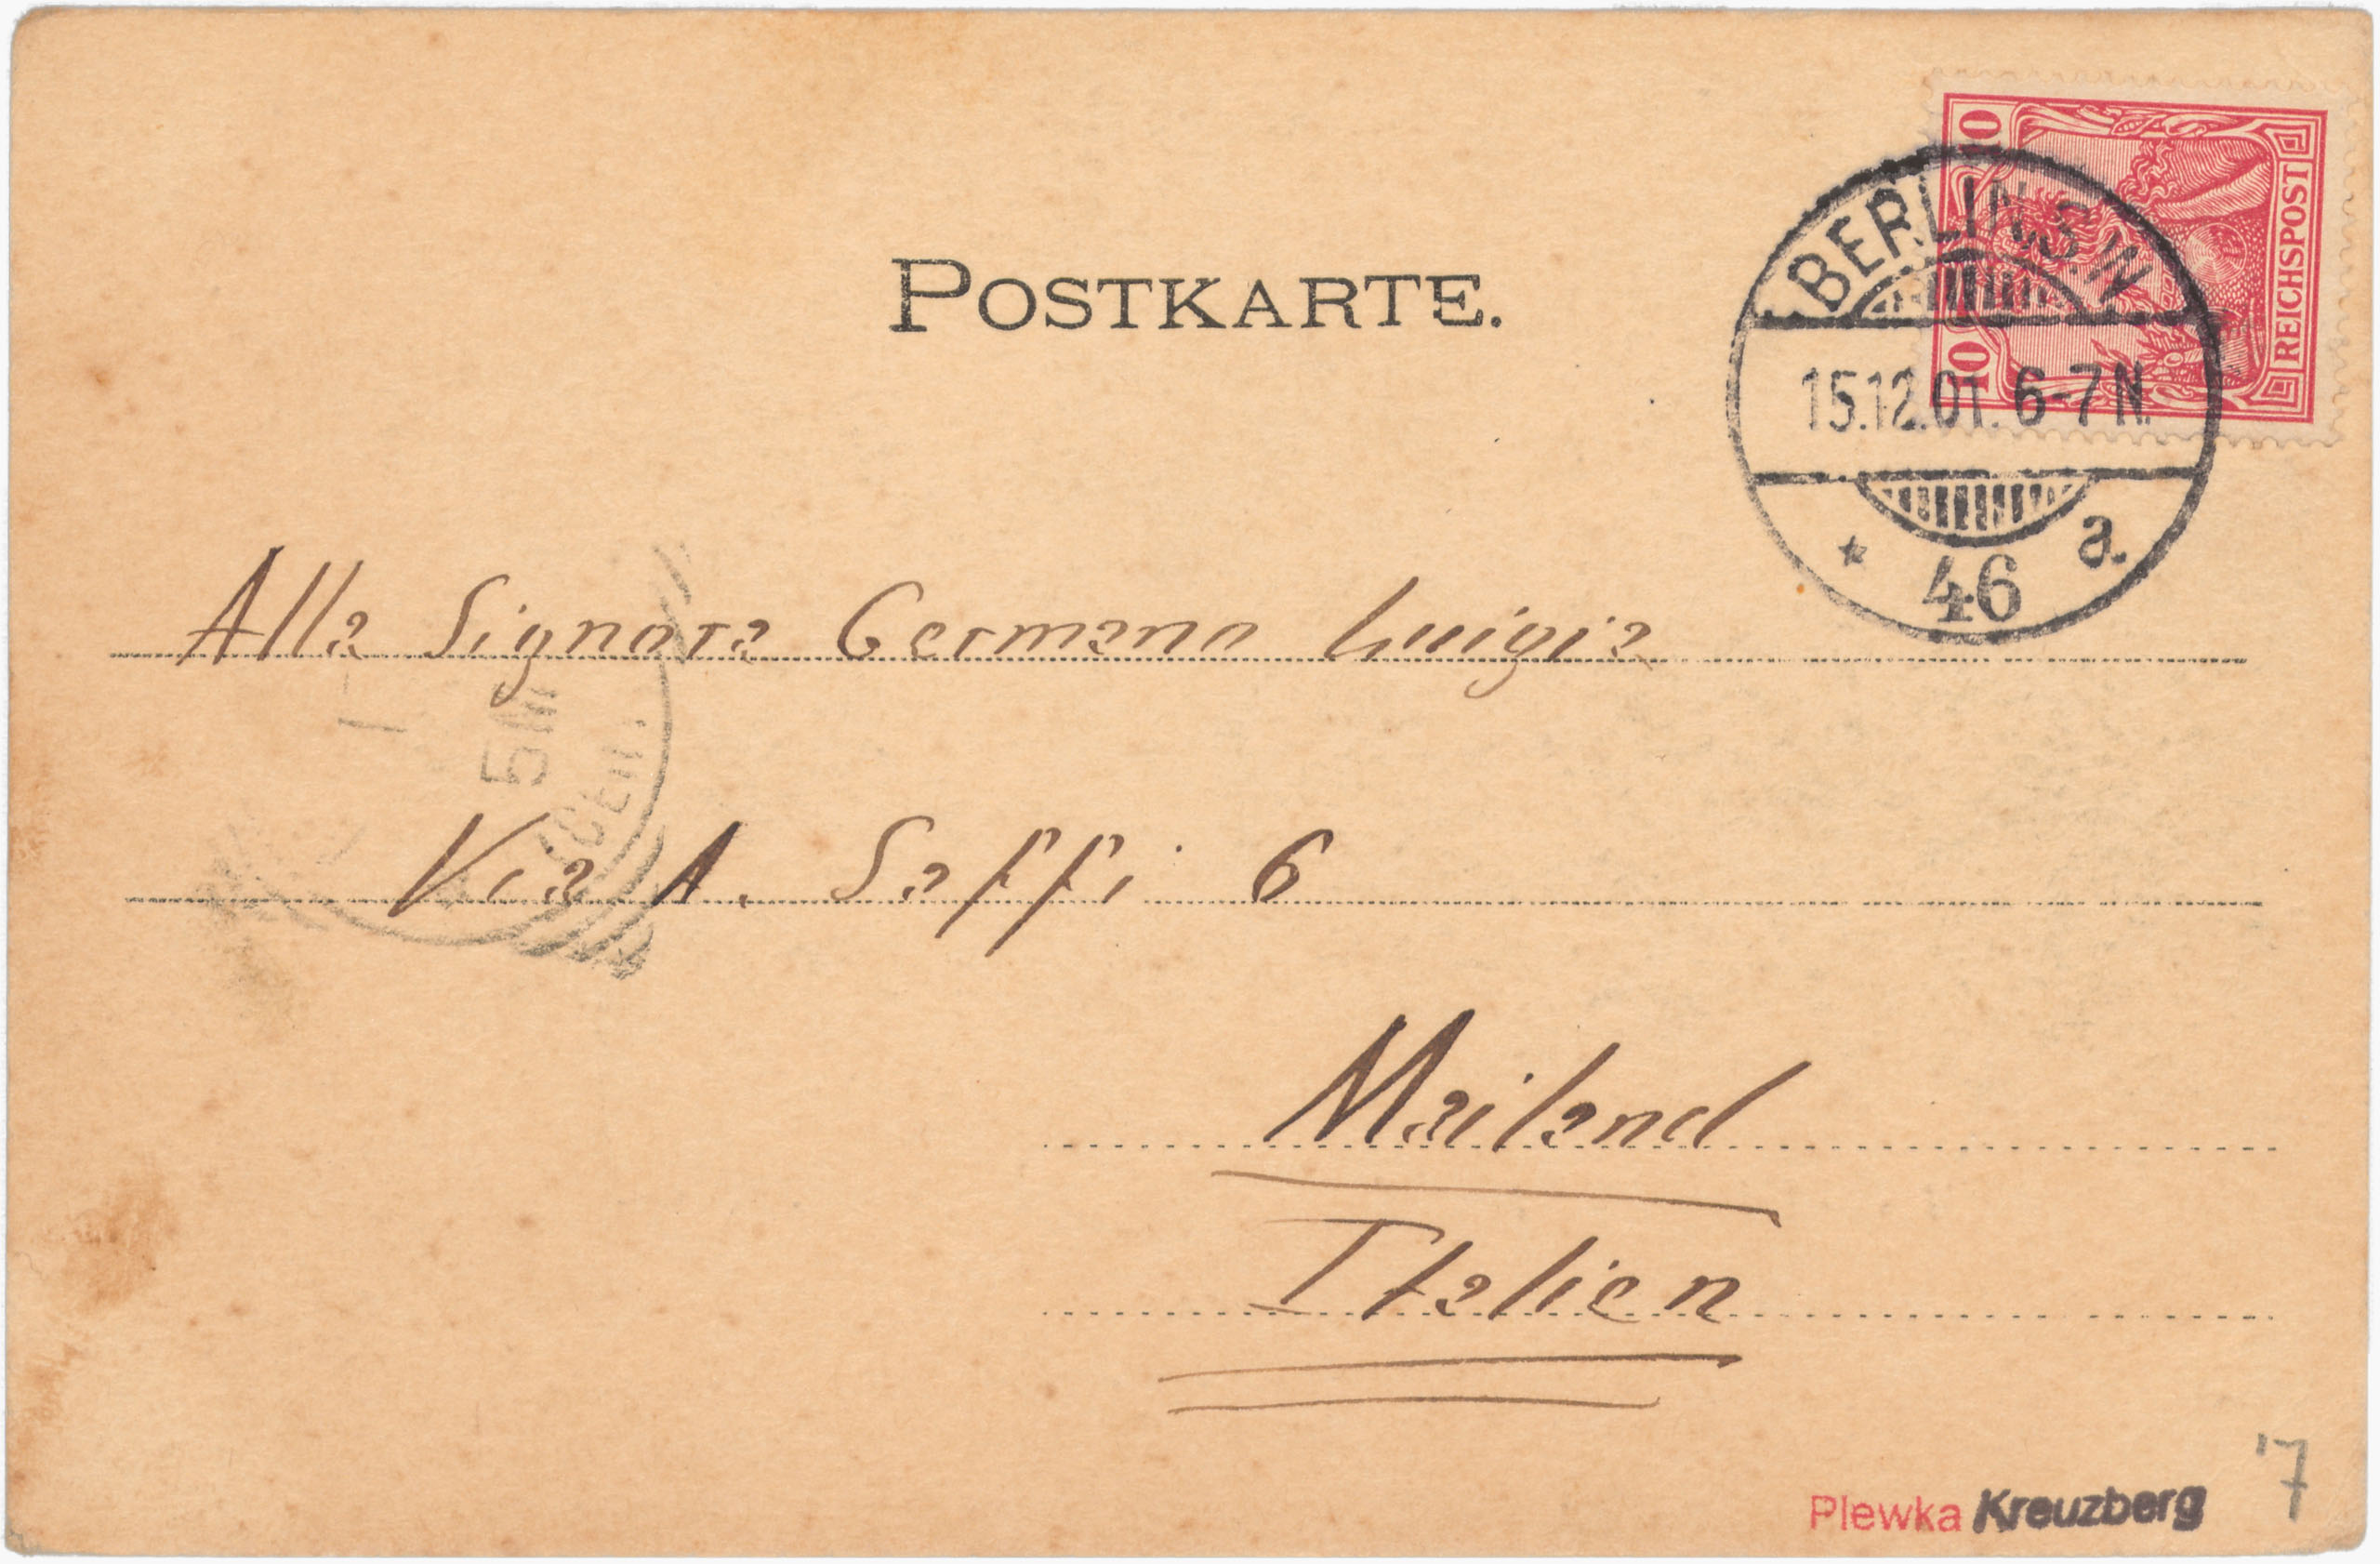 POSTKARTE.
10 10
REICHSPOST
BERLIN. S W
15.12.01. 6-7 N.
* 46 a.
Alla Signora Germano Luigia
5
Via A. Saffi 6
Mailand
Italien
Plewka Kreuzberg
'7